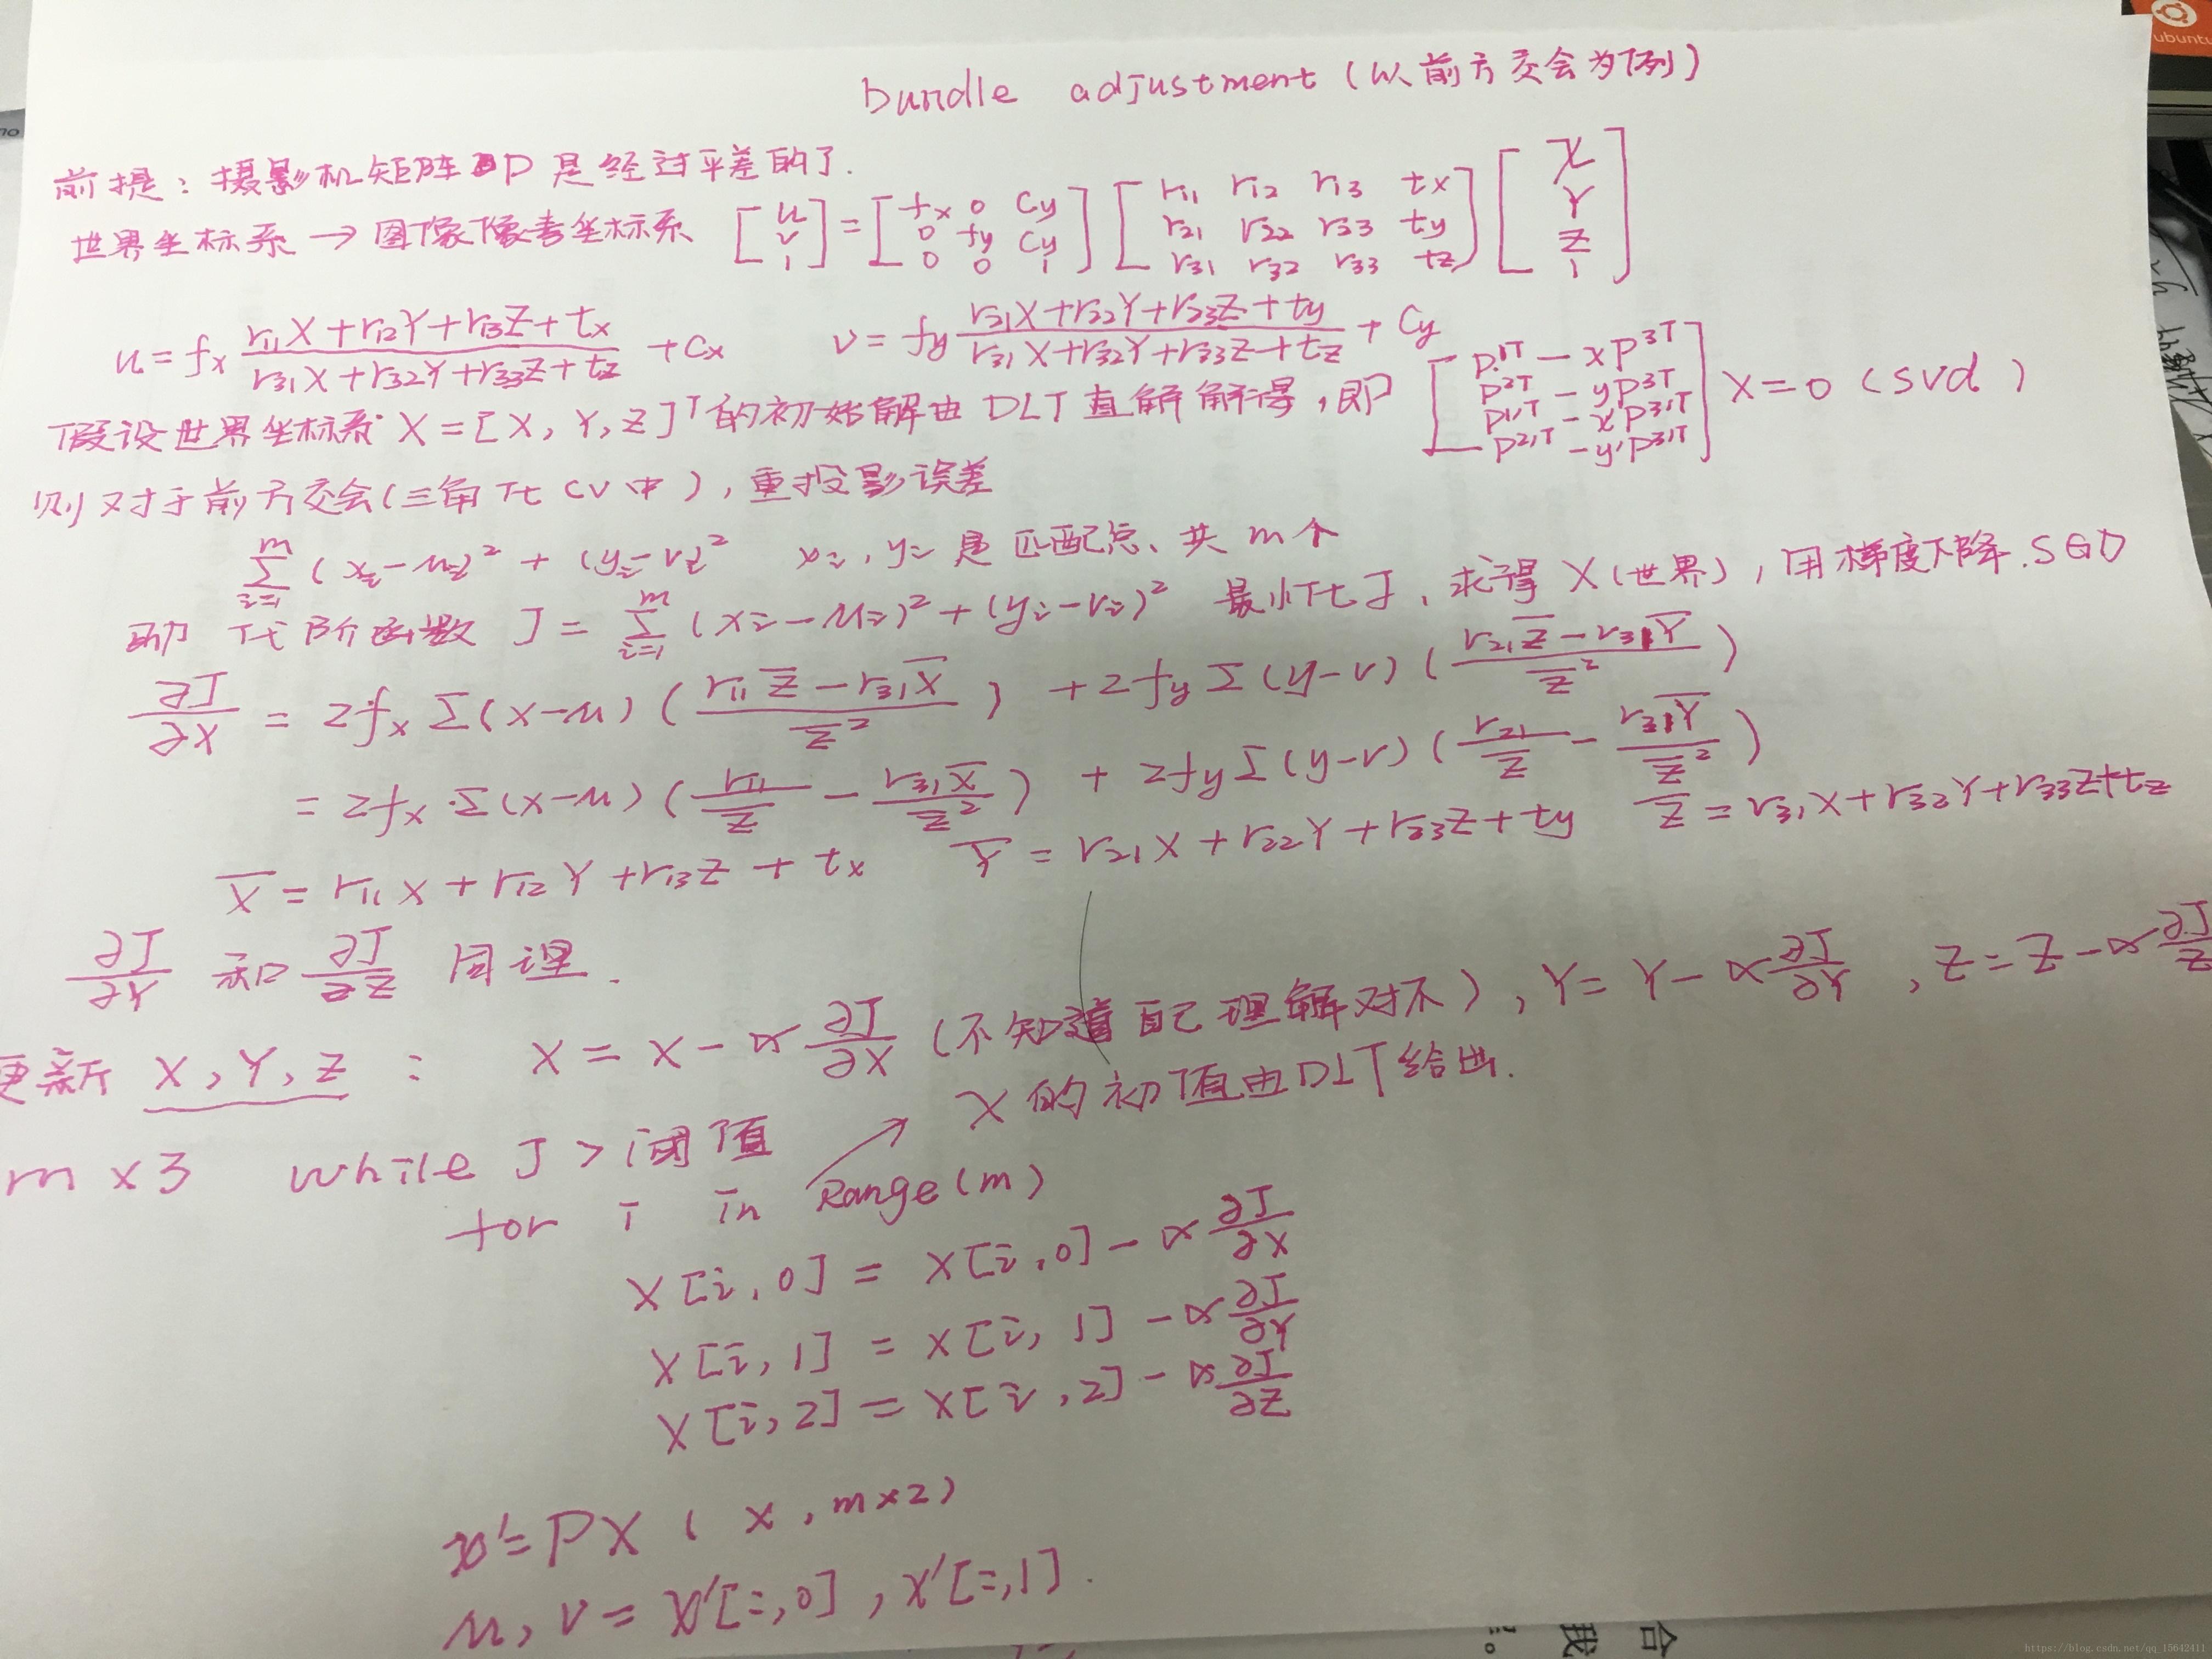 bundle adjustment (以前方交会为例)
前提：摄影机矩阵P是经过平差的了.
世界坐标系→图像像素坐标系 [u v 1] = [fx 0 cy; 0 fy cy; 0 0 1] [r11 r12 r13 tx; r21 r22 r23 ty; r31 r32 r33 tz] [X Y Z 1]
u = fx (r11X+r12Y+r13Z+tx)/(r31X+r32Y+r33Z+tz) + cx v = fy (r21X+r22Y+r23Z+ty)/(r31X+r32Y+r33Z+tz) + cy
假设世界坐标系 X=[X, Y, Z]ᵀ的初始解由 DLT 直解解得, 即 [P1T - xP3T; P2T - yP3T; P1'T - x'P3'T; P2'T - y'P3'T] X=0 (svd)
则对于前方交会(三角化 CV中), 重投影误差
Σ(i=1..m) (xi-ui)² + (yi-vi)² xi, yi 是匹配点、共 m个
即 代价函数 J = Σ(i=1..m) (xi-ui)² + (yi-vi)² 最小化J、求得 X(世界), 用梯度下降.SGD
∂J/∂X = 2fx Σ(x-u)((r11Z̅-r31X̅)/Z̅²) + 2fy Σ(y-v)((r21Z̅-r31Y̅)/Z̅²)
= 2fx·Σ(x-u)(r11/Z̅ - r31X̅/Z̅²) + 2fyΣ(y-v)(r21/Z̅ - r31Y̅/Z̅²)
X̅ = r11X+r12Y+r13Z+tx Y̅ = r21X+r22Y+r23Z+ty Z̅ = r31X+r32Y+r33Z+tz
∂J/∂Y 和 ∂J/∂Z 同理.
更新 X, Y, Z : X = X - α ∂J/∂X (不知道自己理解对不), Y = Y - α ∂J/∂Y , Z = Z - α ∂J/Z
X 的初值由DLT给出.
m x 3 while J > 阈值
for i in Range(m)
X[i, 0] = X[i, 0] - α ∂J/∂X
X[i, 1] = X[i, 1] - α ∂J/∂Y
X[i, 2] = X[i, 2] - α ∂J/∂Z
x' = PX ( x , m×2)
u, v = x'[:,0], x'[:,1].
ubuntu
https://blog.csdn.net/qq_15642411